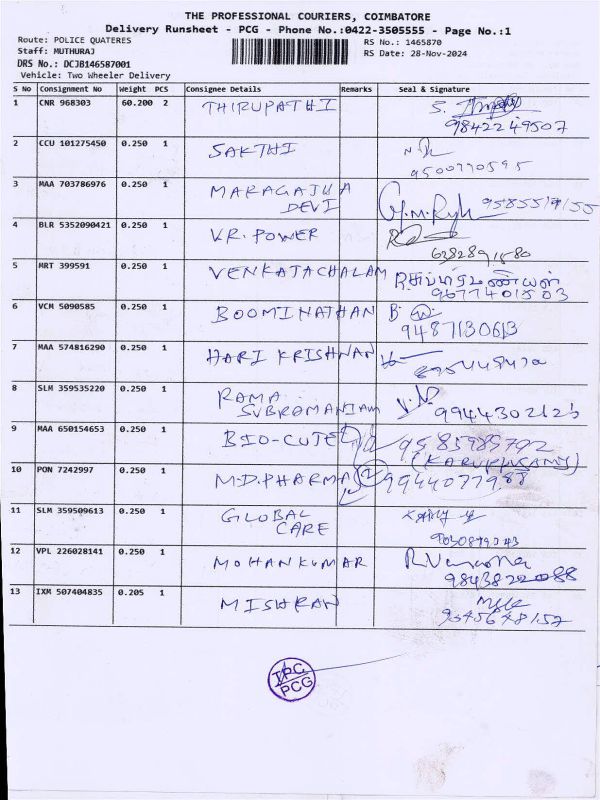 THE PROFESSIONAL COURIERS, COIMBATORE
Delivery Runsheet - PCG - Phone No.:0422-3505555 - Page No.:1
Route: POLICE QUATERES
RS No.: 1465870
Staff: MUTHURAJ
RS Date: 28-Nov-2024
DRS No.: DCJB146587001
Vehicle: Two Wheeler Delivery
S No Consignment No Weight PCS Consignee Details Remarks Seal & Signature
1 CNR 968303 60.200 2 THIRUPATHI S.
9842249507
2 CCU 101275450 0.250 1 SAKTHI
9500770595
3 MAA 703786976 0.250 1 MARAGATHA
DEVI
4 BLR 5352090421 0.250 1 V.R. POWER
6382891580
5 MRT 399591 0.250 1 VENKATACHALAM
9677401503
6 VCM 5090585 0.250 1 BOOMINATHAN B.
9487130613
7 MAA 574816290 0.250 1 HARI KRISHNAN
8 SLM 359535220 0.250 1 RAMA
SUBRAMANIAM
9 MAA 650154653 0.250 1 BIO-CUTE
(KARUPPUSAMY)
10 PON 7242997 0.250 1 M.D.PHARMA 2 9944077988
11 SLM 359509613 0.250 1 GLOBAL
CARE
12 VPL 226028141 0.250 1 MOHANKUMAR
9843822088
13 IXM 507404835 0.205 1 MISHRAN
9345648152
PCG